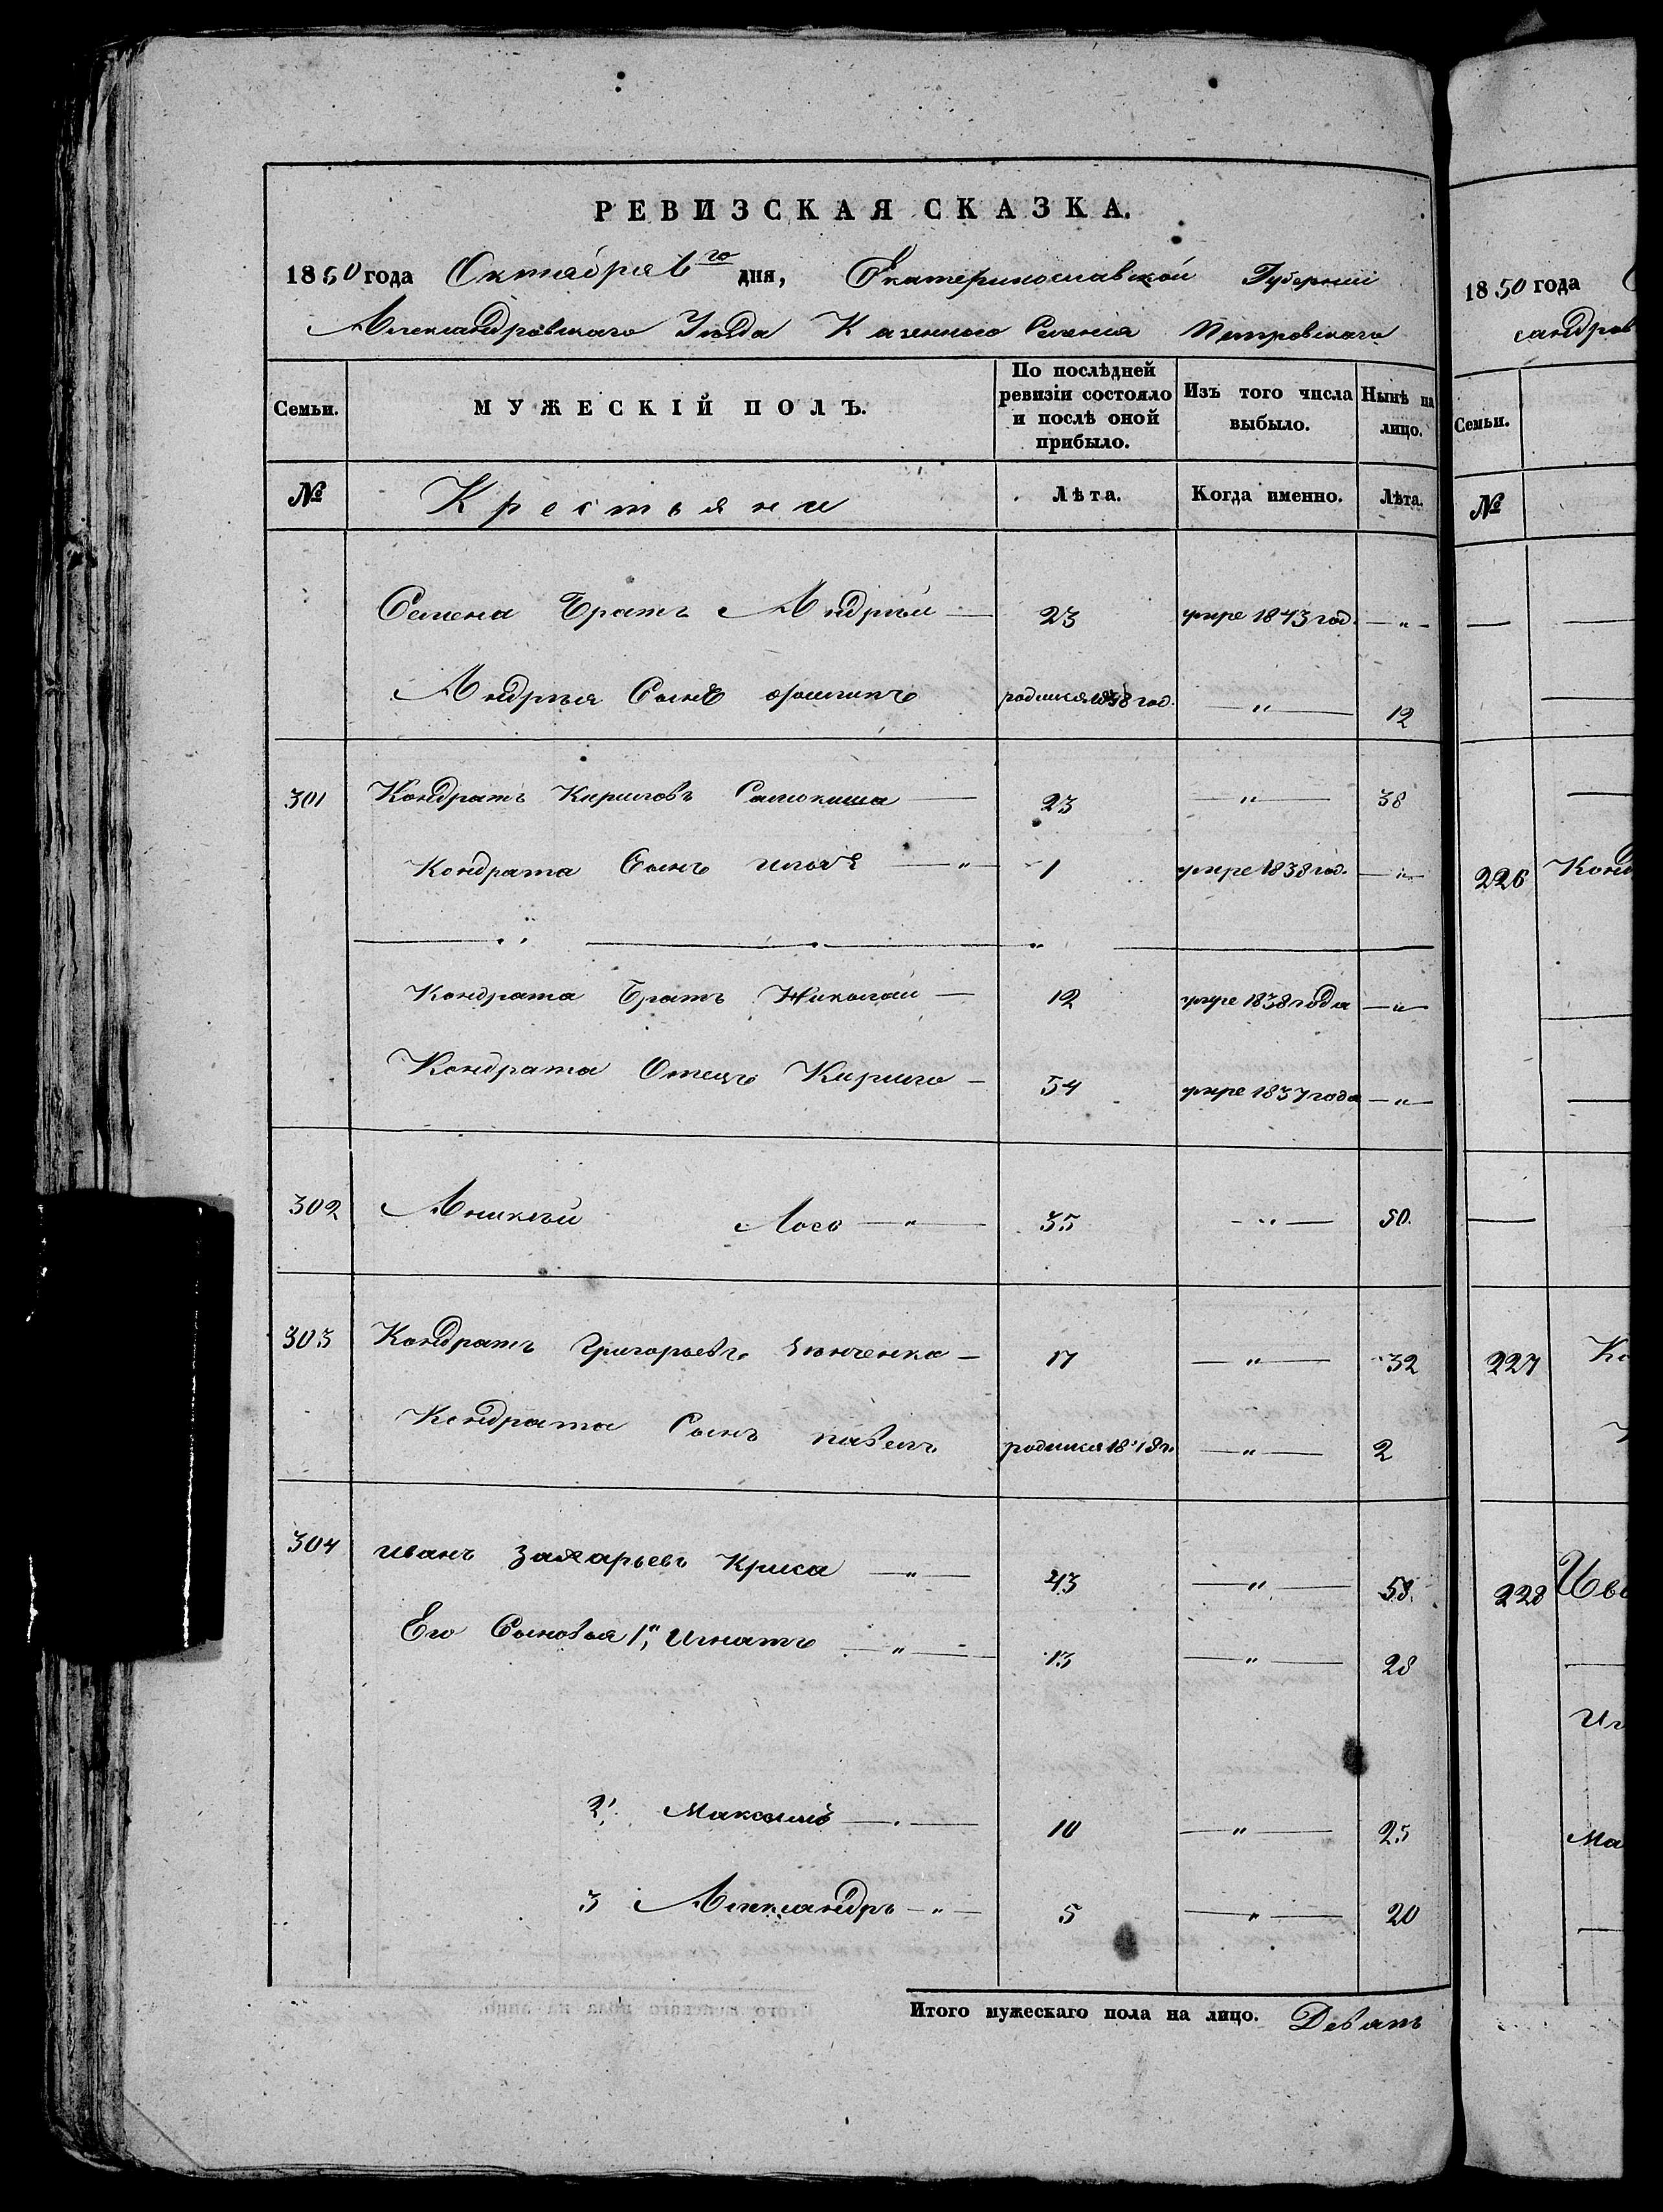 РЕВИЗСКАЯ СКАЗКА.
1850 года Октября 6го дня, Екатеринославской Губернии
Александровскаго Уезда Казеннаго Селенія Петровскаго
Семьи. МУЖЕСКІЙ ПОЛЪ. По послѣдней ревизіи состояло и послѣ оной прибыло. Изъ того числа выбыло. Нынѣ на лицо.
№ Крестьяни Лѣта. Когда именно. Лѣта.
Семена Братъ Андрѣй — 23 умре 1843 год. — " —
Андрѣя Сынъ Филипъ родился 1838 год. — " — 12
301 Кондратъ Кириловъ — 23 — " — 38
Кондрата Сынъ Илья — " — 1 умре 1838 год. — " —
Кондрата Братъ Николай — 12 умре 1838 года — " —
Кондрата Отецъ Кирило — 54 умре 1837 года — " —
302 Аникѣй Лосъ — " — 35 — " — 50.
303 Кондратъ Григорьевъ — 17 — " — 32
Кондрата Сынъ павелъ родился 1848 г. — " — 2
304 иванъ Захарьевъ Криса — " — 43 — " — 58.
Его Сыновья 1", Игнатъ — " — 13 — " — 28
2', Максимъ — . — 10 — " — 25
3 Александръ — " — 5 — " — 20
Итого мужескаго пола на лицо. Девять
1850 года
сандров
Семьи.
№
226 Конд
227 Ко
228 Ива
Иг
Ма